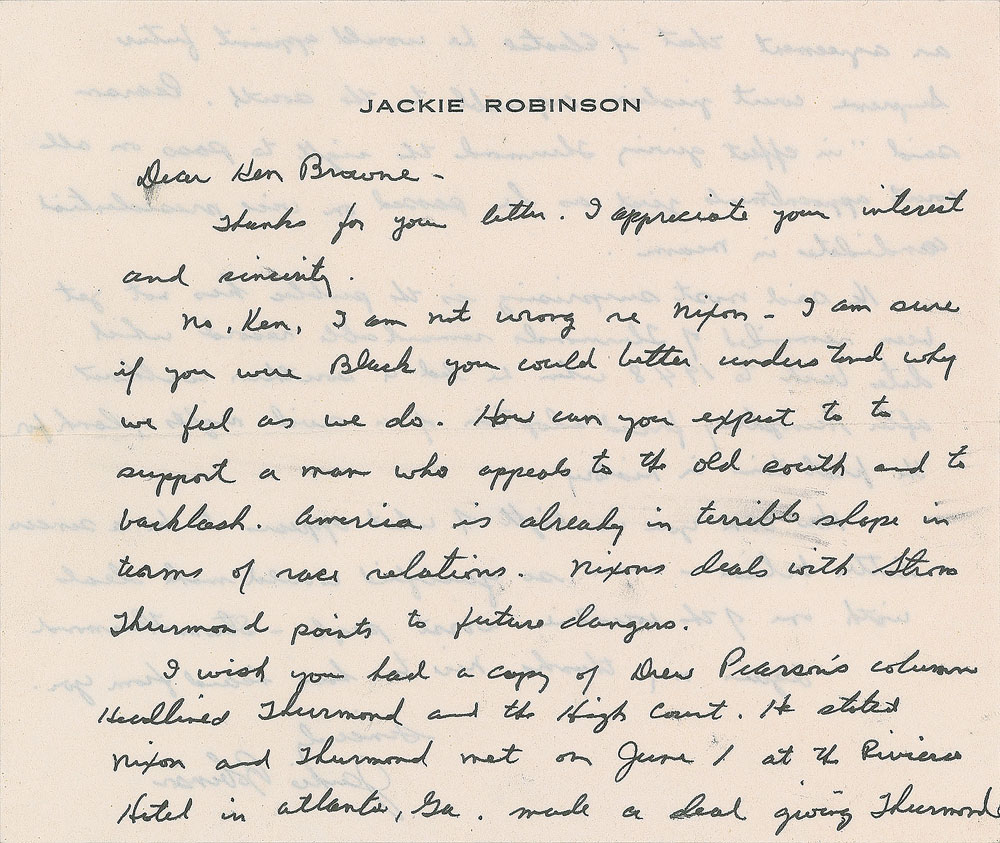 JACKIE ROBINSON
Dear Ken Browne -
Thanks for your letter. I appreciate your interest
and sincerity.
No, Ken, I am not wrong re Nixon - I am sure
if you were Black you could better understand why
we feel as we do. How can you expect to to
support a man who appeals to the old south and to
backlash. America is already in terrible shape in
terms of race relations. Nixons deals with Strom
Thurmond points to future dangers.
I wish you had a copy of Drew Pearson's column
Headlined Thurmond and the High Court. He stated
Nixon and Thurmond met on June 1 at the Riviera
Hotel in Atlanta, Ga. made a deal giving Thurmond